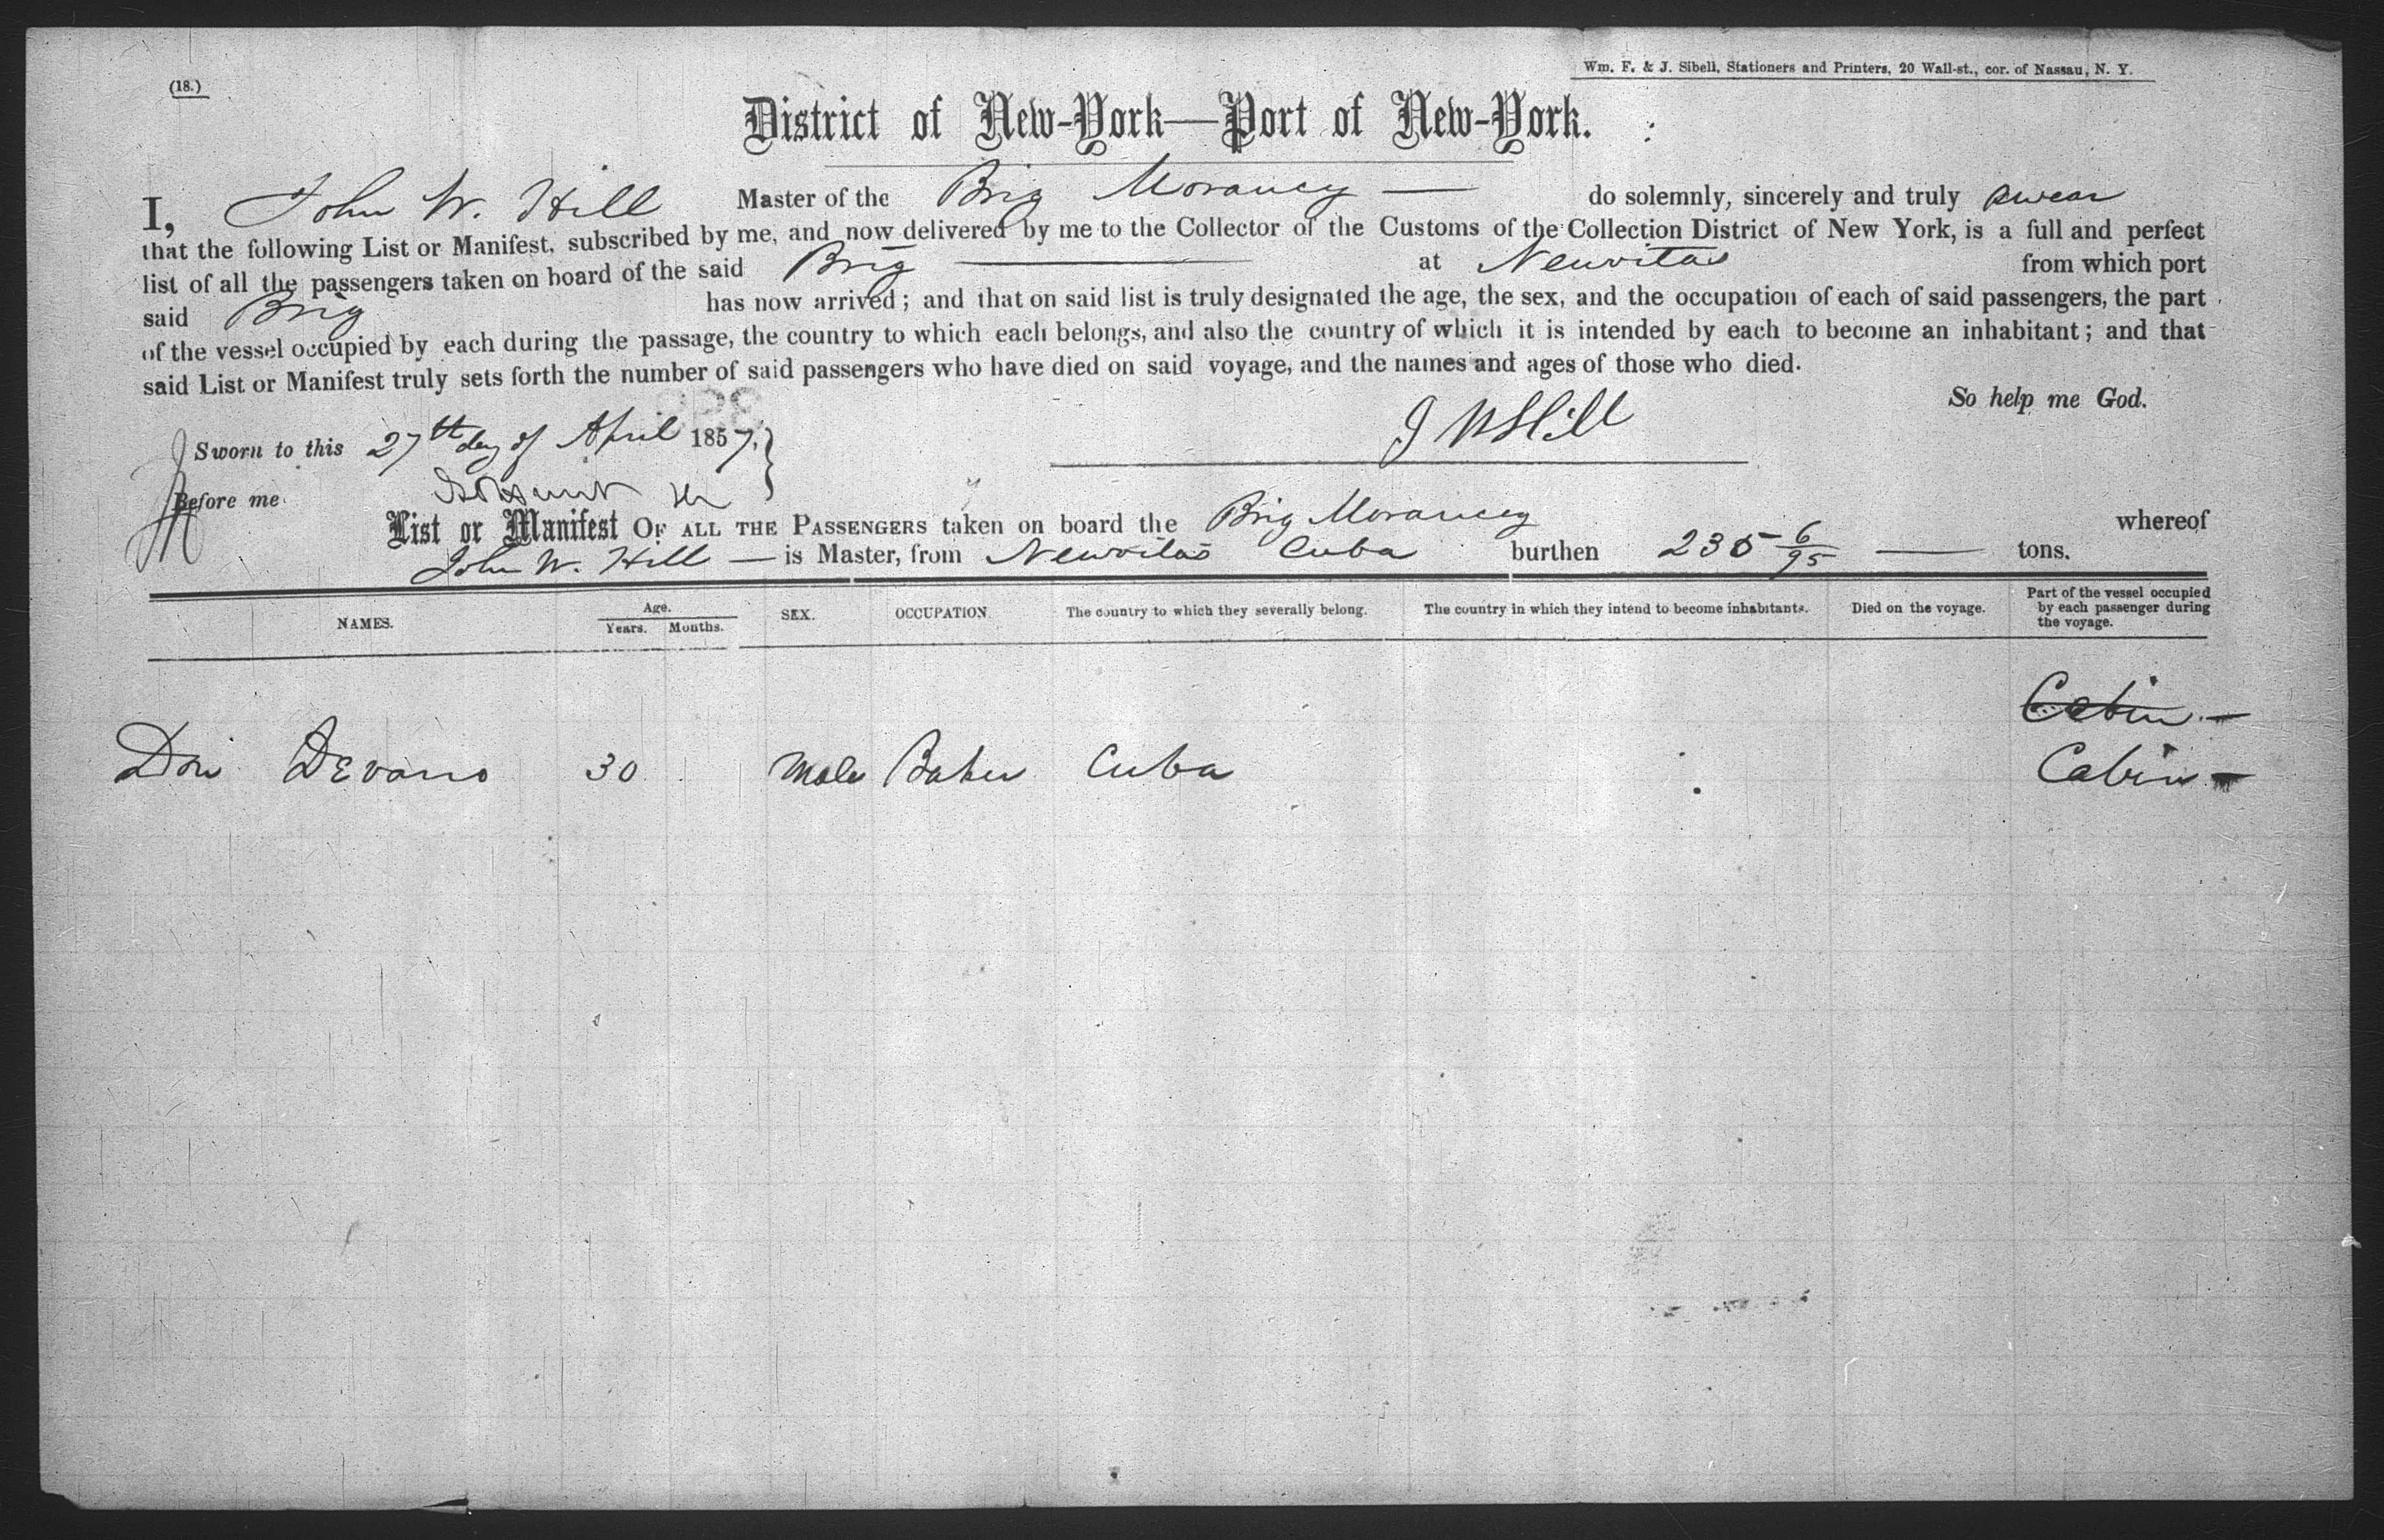 (18.)
Wm. F. & J. Sibell, Stationers and Printers, 20 Wall-st., cor. of Nassau, N. Y.
District of New-York—Port of New-York.
I, John W. Hill Master of the Brig Morancy — do solemnly, sincerely and truly swear
that the following List or Manifest, subscribed by me, and now delivered by me to the Collector of the Customs of the Collection District of New York, is a full and perfect
list of all the passengers taken on board of the said Brig — at Neuvitas from which port
said Brig has now arrived; and that on said list is truly designated the age, the sex, and the occupation of each of said passengers, the part
of the vessel occupied by each during the passage, the country to which each belongs, and also the country of which it is intended by each to become an inhabitant; and that
said List or Manifest truly sets forth the number of said passengers who have died on said voyage, and the names and ages of those who died.
So help me God.
J W Hill
Sworn to this 27th day of April 1857.
Before me
List or Manifest OF ALL THE PASSENGERS taken on board the Brig Morancy whereof
John W. Hill — is Master, from Neuvitas Cuba burthen 235 6/95 — tons.
NAMES. Age. Years. Months. SEX. OCCUPATION. The country to which they severally belong. The country in which they intend to become inhabitants. Died on the voyage. Part of the vessel occupied by each passenger during the voyage.
Cabin —
Don DEvano 30 Male Baker Cuba Cabin —